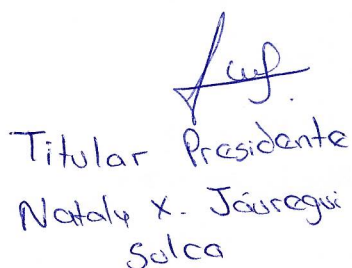 Titular Presidente
Nataly X. Jáuregui
Sulca